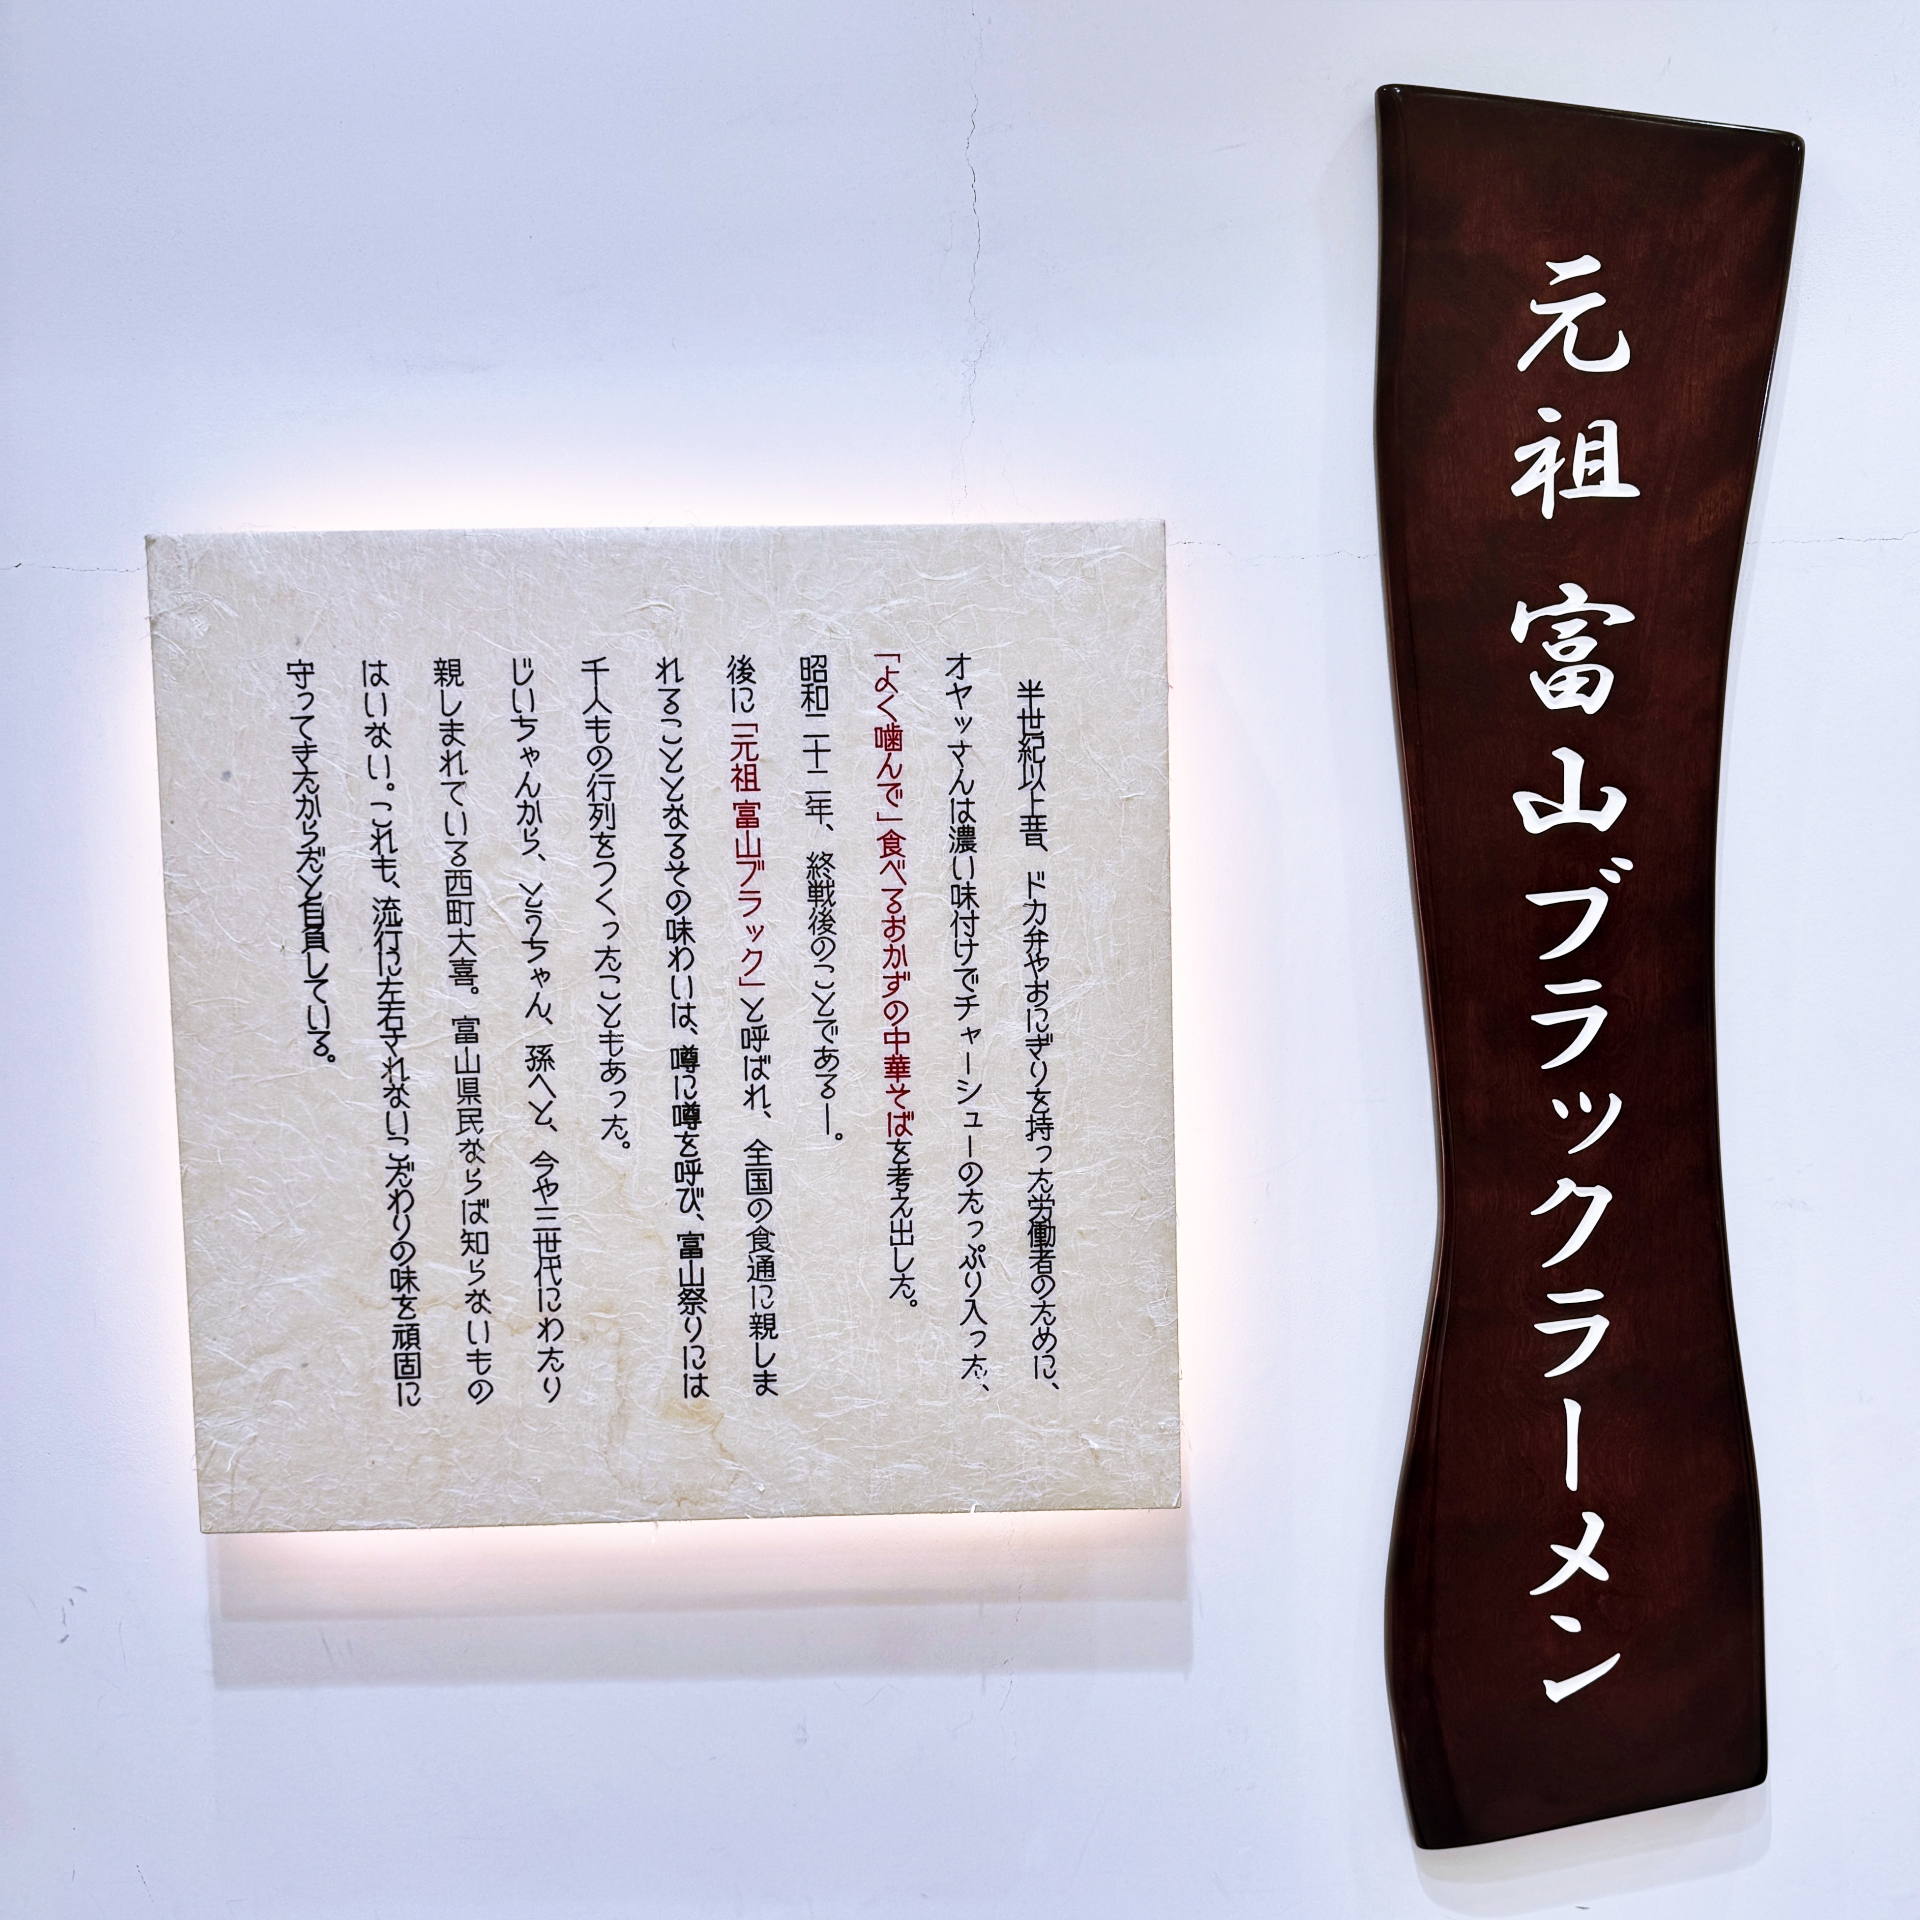 元祖 富山ブラックラーメン
半世紀以上昔、ドカ弁やおにぎりを持った労働者のために、
オヤッさんは濃い味付けでチャーシューのたっぷり入った、
「よく噛んで」食べるおかずの中華そばを考え出した。
昭和二十二年、終戦後のことである―。
後に「元祖 富山ブラック」と呼ばれ、全国の食通に親しま
れることとなるその味わいは、噂に噂を呼び、富山祭りには
千人もの行列をつくったこともあった。
じいちゃんから、とうちゃん、孫へと、今や三世代にわたり
親しまれている西町大喜。富山県民ならば知らないもの
はいない。これも、流行に左右されないこだわりの味を頑固に
守ってきたからだと自負している。